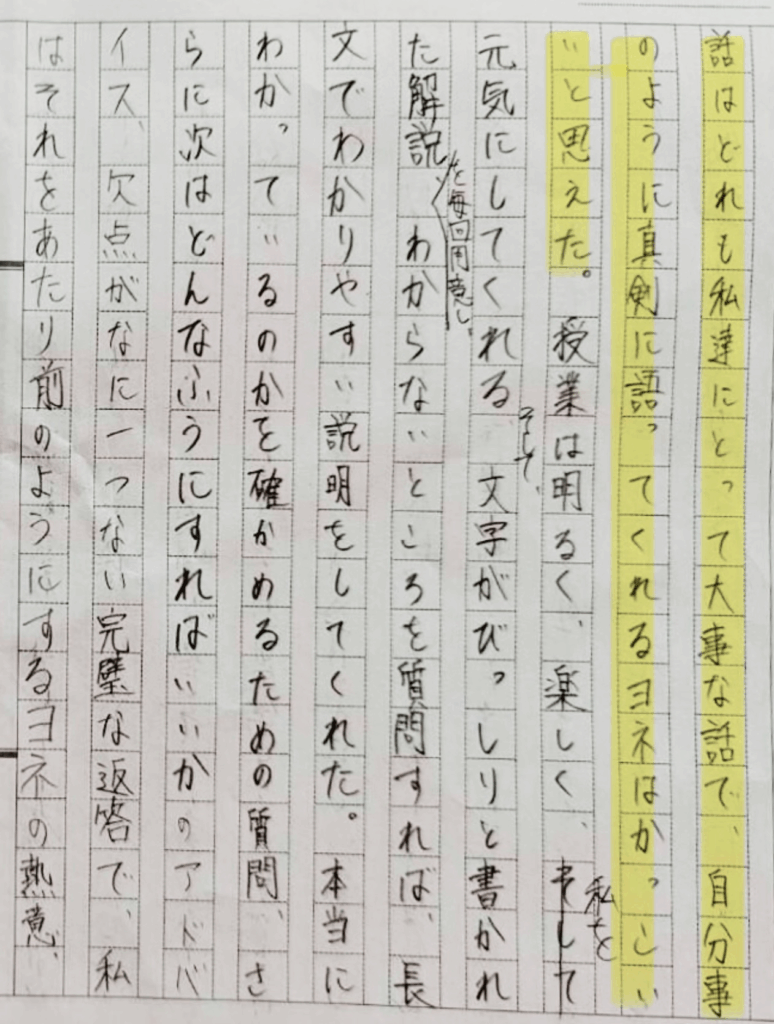 話はどれも私達にとって大事な話で、自分事
のように真剣に語ってくれるヨネはかっこい
いと思えた。授業は明るく、楽しく、そして
私を
元気にしてくれる、文字がびっしりと書かれ
そして、
た解説、わからないところを質問すれば、長
を毎回用意し、
文でわかりやすい説明をしてくれた。本当に
わかっているのかを確かめるための質問、さ
らに次はどんなふうにすればいいかのアドバ
イス、欠点がなに一つない完璧な返答で、私
はそれをあたり前のようにするヨネの熱意、